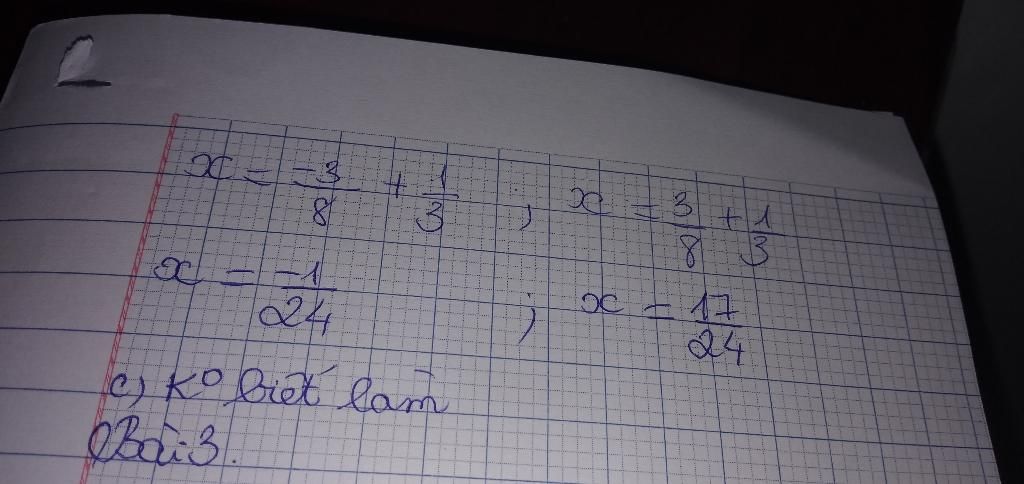 x = -3/8 + 1/3 ; x = 3/8 + 1/3
x = -1/24 ; x = 17/24
c) K° biết làm
Bài 3.